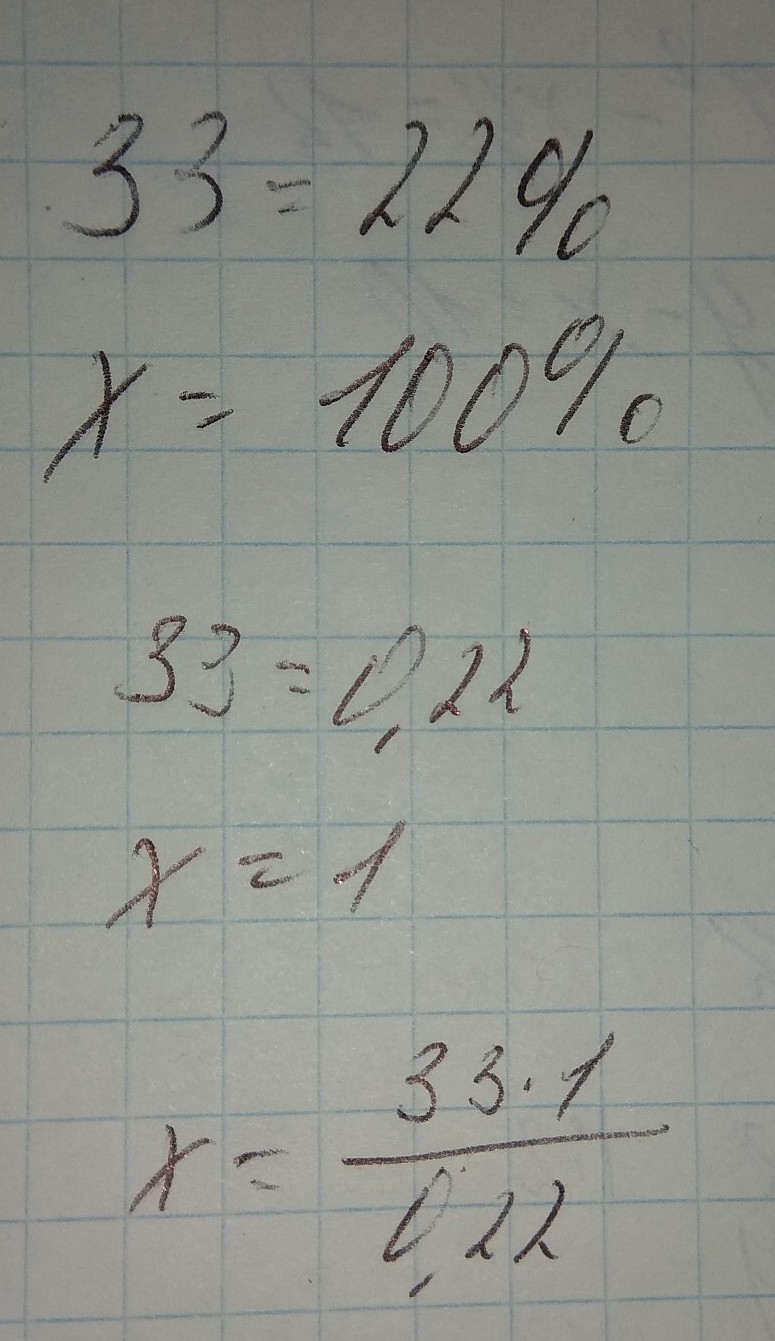 33 = 22%
x = 100%
33 = 0,22
x = 1
x = 33·1
0,22